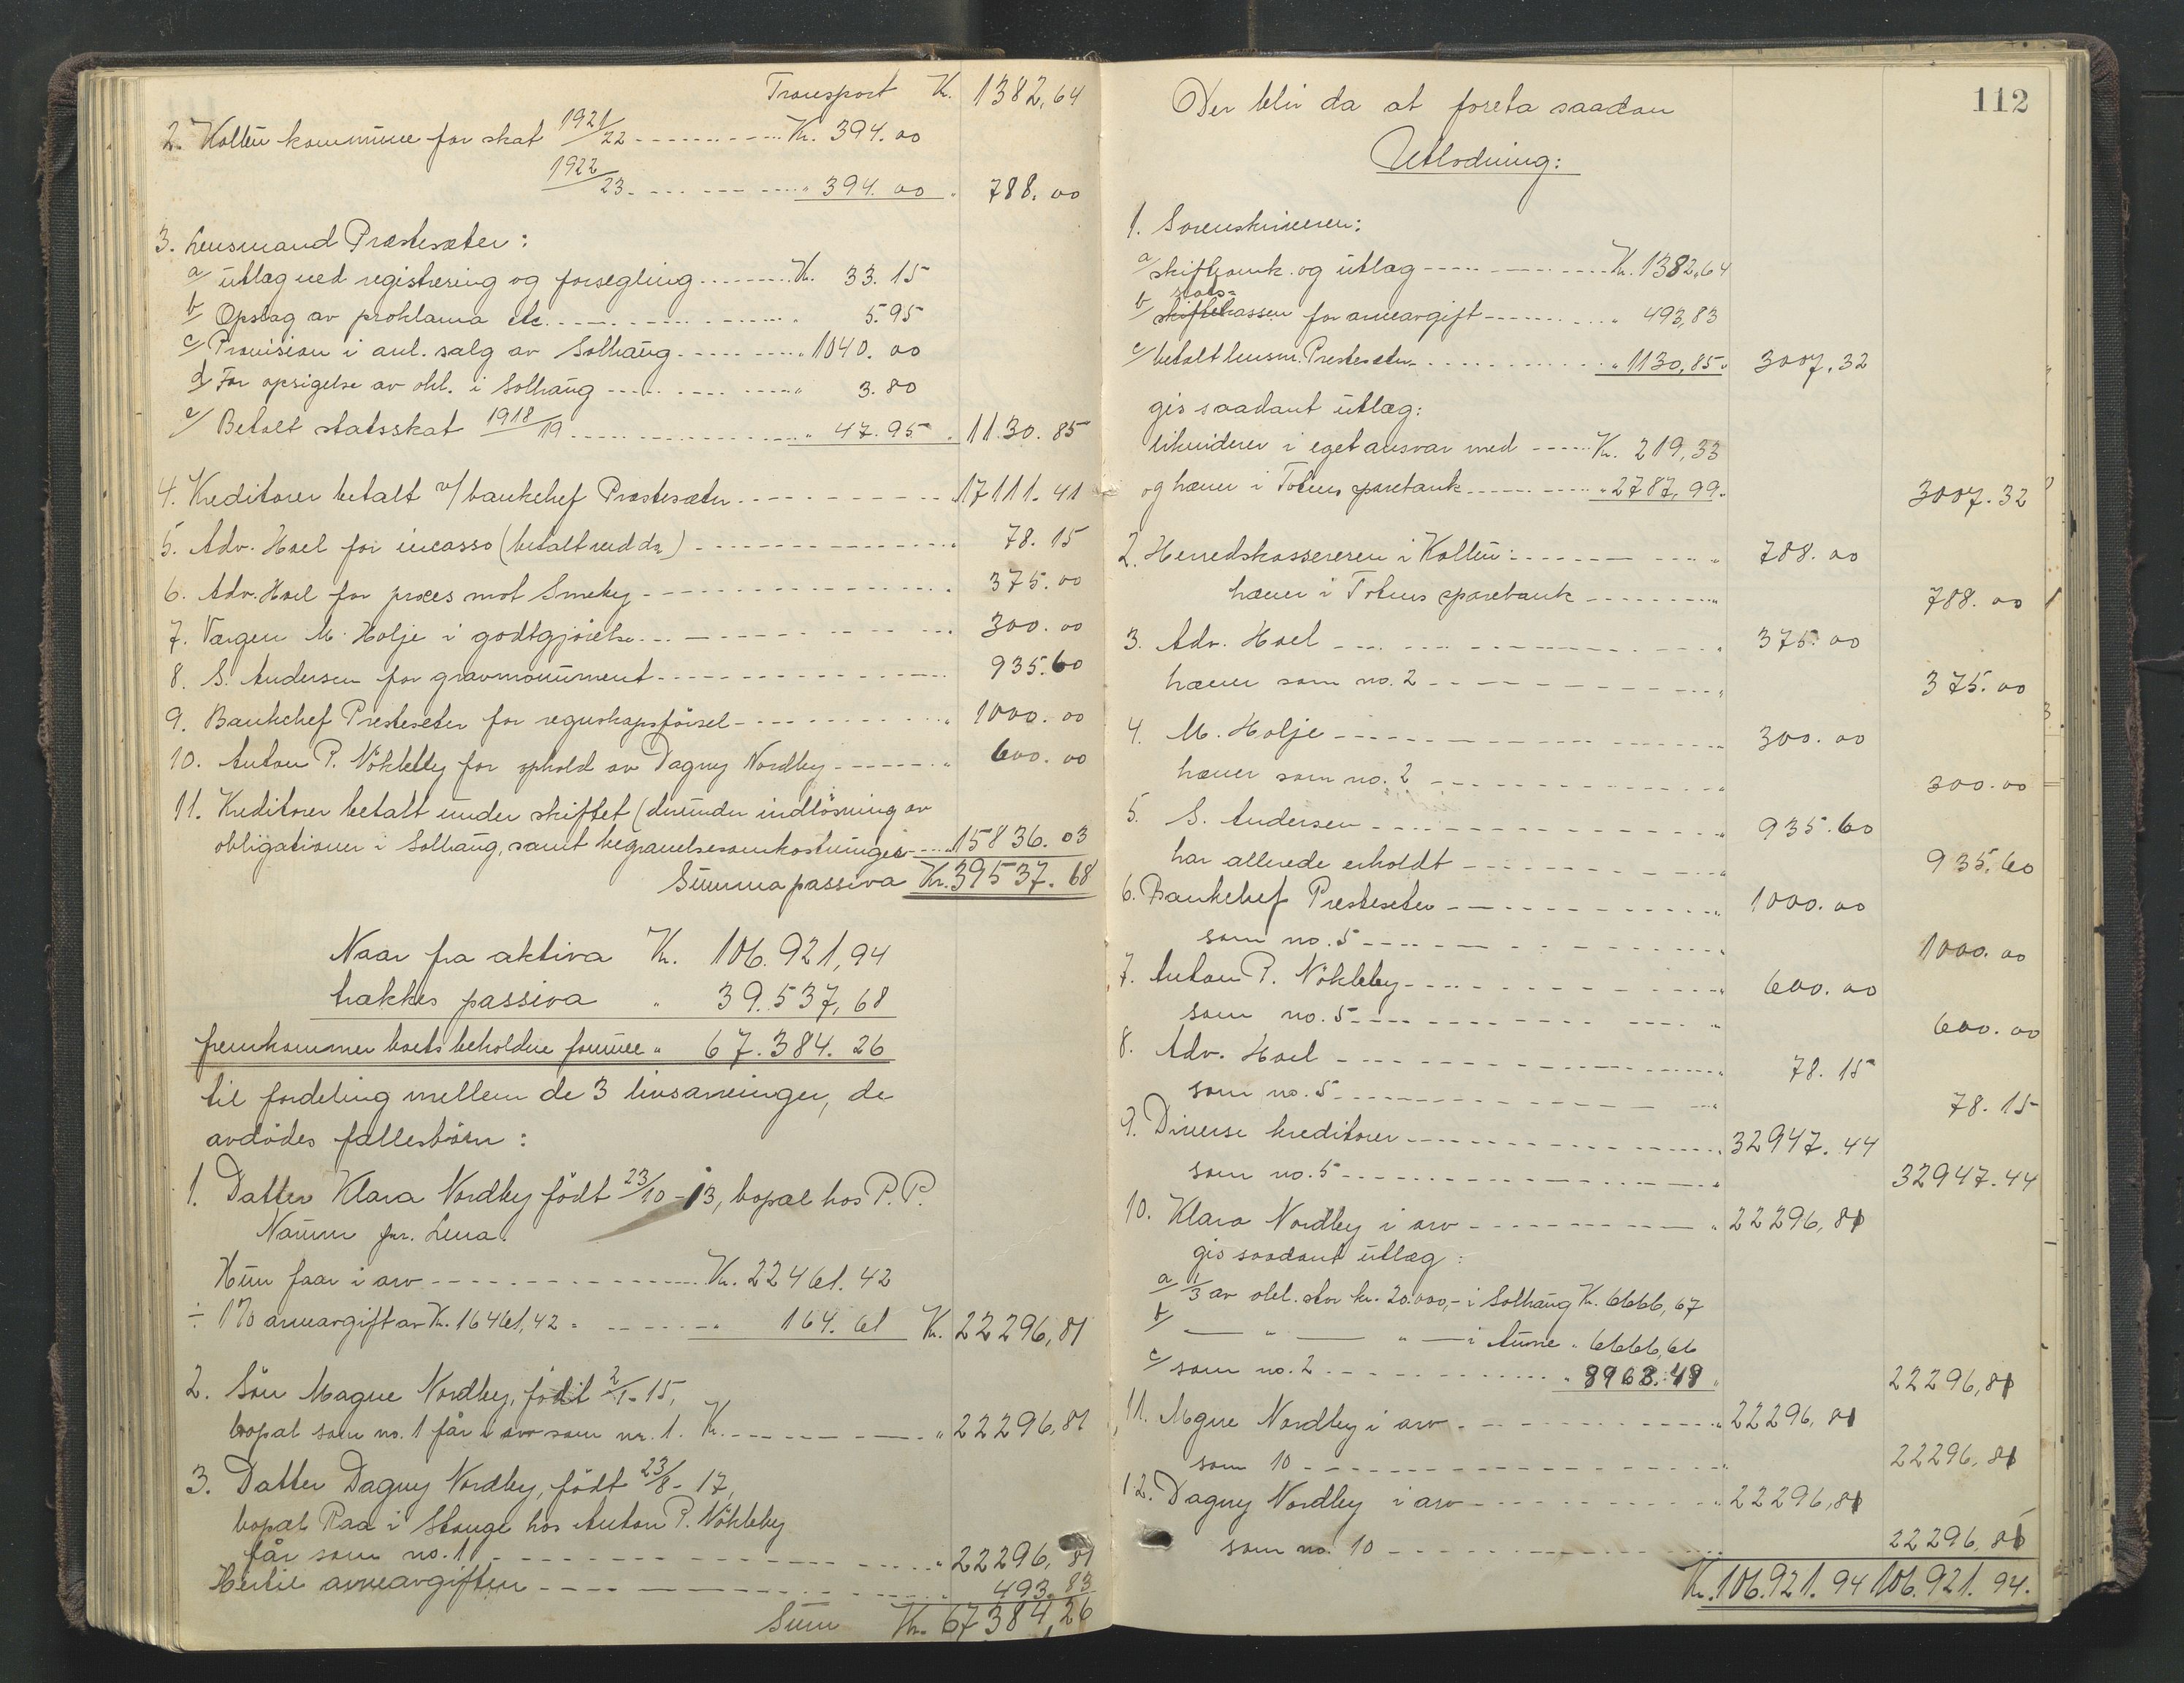 Transport Kr. 1382,64
2. Kolbu kommune for skat 1921/22 Kr. 394.00
1922/23 " 394.00 " 788.00
3. Lensmand Præstesæter:
a/ utlæg ved registrering og forsegling Kr. 33.15
b/ Opslag av proklama etc. " 5.95
c/ Provision i anl. salg av Solhaug " 1040.00
d/ For opsigelse av obl. i Solhaug " 3.80
e/ Betalt statsskat 1918/19 " 47.95 " 1130.85
4. Kreditorer betalt v/ bankchef Præstesæter " 17111.41
5. Adv. Hoel for incasso (betalt ved do) " 78.15
6. Adv. Hoel for proces mot Smeby " 375.00
7. Værgen M. Holje i godtgjørelse " 300.00
8. S. Andersen for gravmonument 935.60
9. Bankchef Presteseter for regnskapsførsel " 1000.00
10. Anton P. Nökleby for ophold av Dagny Nordby " 600.00
11. Kreditorer betalt under skiftet (derunder indlösning av
obligationer i Solhaug, samt begravelsesomkostninger " 15836.03
Summa passiva Kr. 39537.68
Naar fra aktiva Kr. 106.921,94
trækkes passiva " 39.537,68
fremkommer boets beholdne formue " 67.384.26
til fordeling mellem de 3 livsarvinger, de
avdødes fællesbörn:
1. Datter Klara Nordby født 23/10-13, bopæl hos P. P.
Narum pr. Lena.
Hun faar i arv Kr. 22461.42
÷ 1% arveavgift av Kr. 16461,42 " 164.61 Kr. 22296,81
2. Sön Magne Nordby, födt 2/1-15,
bopæl som no. 1 får i arv som nr. 1. Kr. " 22296,81
3. Datter Dagny Nordby, født 23/8-17,
bopæl Raa i Stange hos Anton P. Nökleby
får som no. 1 " 22296,81
Hertil arveavgiften " 493.83
Sum Kr. 67384,26
112
Der blir da at foreta saadan
Utlodning:
1. Sorenskriveren:
a/ skifteomk. og utlæg Kr. 1382,64
stats-
b/ skiftekassen for arveavgift " 493,83
c/ betalt lensm. Presteseter " 1130,85 " 3007,32
gis saadant utlæg:
likviderer i eget ansvar med Kr. 219,33
og hæver i Totens sparebank " 2787,99. 3007.32
2. Herredskassereren i Kolbu: " 788.00
hæver i Totens sparebank " 788.00
3. Adv. Hoel " 375.00
hæver som no. 2 " 375.00
4. M. Holje " 300.00
hæver som no. 2 " 300.00
5. S. Andersen " 935.60
har allerede erholdt " 935.60
6. Bankchef Presteseter " 1000.00
som no. 5 " 1000.00
7. Anton P. Nökleby " 600.00
som no. 5 " 600.00
8. Adv. Hoel " 78.15
som no. 5 " 78.15
9. Diverse kreditorer " 32947.44
som no. 5 " 32947.44
10. Klara Nordby i arv " 22296,81
gis saadant utlæg:
a/ 1/3 av obl. stor kr. 20.000,- i Solhaug Kr. 6666,67
b/ — " — " — i Aune " 6666,66
c/ som no. 2 " 8963.48 " 22296,81
11. Mgne Nordby i arv " 22296,81
som 10 " 22296,81
12. Dagny Nordby i arv " 22296,81
som no. 10 22296,81
Kr. 106.921.94 106.921.94.